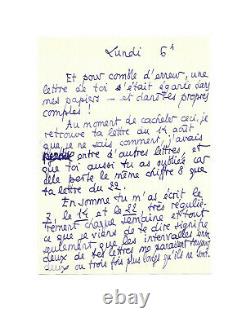 Lundi 6h
Et pour comble d'erreur, une
lettre de toi s'était égarée dans
mes papiers — et dans tes propres
comptes !
Au moment de cacheter ceci, je
retrouve ta lettre du 14 août
que je ne sais comment j'avais
entre d'autres lettres, et
que toi aussi tu as oubliée car
elle porte le même chiffre 8 que
ta lettre du 22.
En somme tu m'as écrit le
7, le 14 et le 22 très réguliè-
rement chaque semaine et tout
ce que je viens de te dire signifie
seulement que les intervalles
deux de tes lettres me paraissent toujours
deux ou trois fois plus longs qu'ils ne sont.
ebay